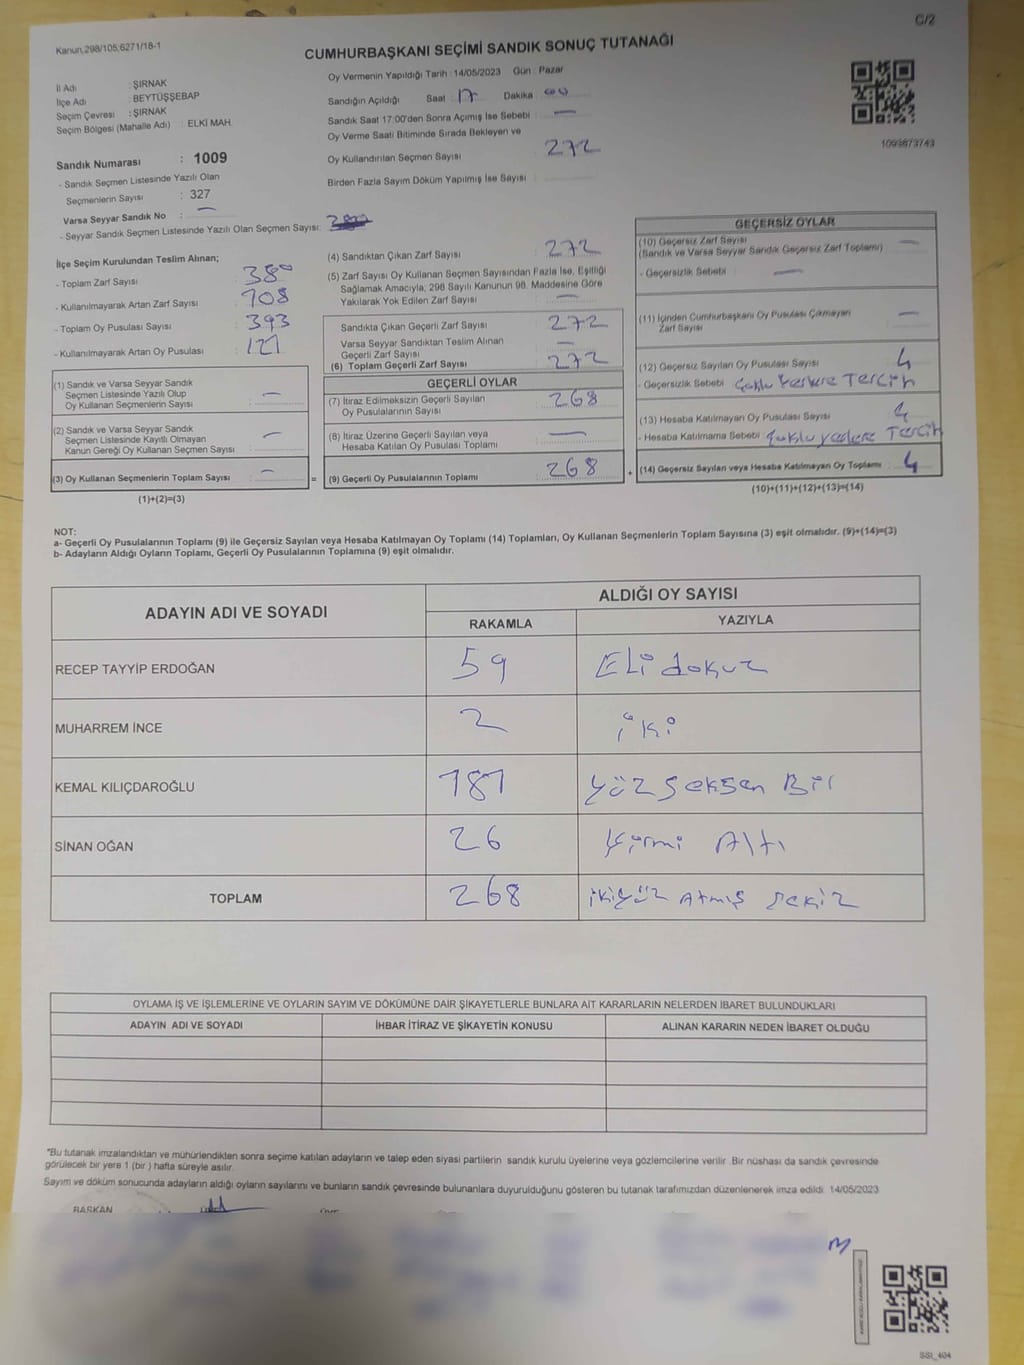 C/2
Kanun,298/105;6271/18-1
CUMHURBAŞKANI SEÇİMİ SANDIK SONUÇ TUTANAĞI
İl Adı : ŞIRNAK
İlçe Adı : BEYTÜŞŞEBAP
Seçim Çevresi : ŞIRNAK
Seçim Bölgesi (Mahalle Adı) : ELKİ MAH.
Sandık Numarası : 1009
- Sandık Seçmen Listesinde Yazılı Olan
Seçmenlerin Sayısı : 327
Varsa Seyyar Sandık No : —
- Seyyar Sandık Seçmen Listesinde Yazılı Olan Seçmen Sayısı:
Oy Vermenin Yapıldığı Tarih : 14/05/2023 Gün : Pazar
Sandığın Açıldığı Saat 17 Dakika 00
Sandık Saat 17:00'den Sonra Açımış İse Sebebi : —
Oy Verme Saati Bitiminde Sırada Bekleyen ve
Oy Kullandırılan Seçmen Sayısı : 272
Birden Fazla Sayım Döküm Yapılmış İse Sayısı :
1093673743
İlçe Seçim Kurulundan Teslim Alınan;
- Toplam Zarf Sayısı : 380
- Kullanılmayarak Artan Zarf Sayısı : 108
- Toplam Oy Pusulası Sayısı : 393
- Kullanılmayarak Artan Oy Pusulası : 121
(1) Sandık ve Varsa Seyyar Sandık
Seçmen Listesinde Yazılı Olup
Oy Kullanan Seçmenlerin Sayısı : —
(2) Sandık ve Varsa Seyyar Sandık
Seçmen Listesinde Kayıtlı Olmayan
Kanun Gereği Oy Kullanan Seçmen Sayısı : —
(3) Oy Kullanan Seçmenlerin Toplam Sayısı : — =
(1)+(2)=(3)
(4) Sandıktan Çıkan Zarf Sayısı : 272
(5) Zarf Sayısı Oy Kullanan Seçmen Sayısından Fazla İse, Eşitliği
Sağlamak Amacıyla, 298 Sayılı Kanunun 98. Maddesine Göre
Yakılarak Yok Edilen Zarf Sayısı : —
Sandıkta Çıkan Geçerli Zarf Sayısı : 272
Varsa Seyyar Sandıktan Teslim Alınan
Geçerli Zarf Sayısı : —
(6) Toplam Geçerli Zarf Sayısı : 272
GEÇERLİ OYLAR
(7) İtiraz Edilmeksizin Geçerli Sayılan
Oy Pusulalarının Sayısı : 268
(8) İtiraz Üzerine Geçerli Sayılan veya
Hesaba Katılan Oy Pusulası Toplamı : —
(9) Geçerli Oy Pusulalarının Toplamı : 268 +
GEÇERSİZ OYLAR
(10) Geçersiz Zarf Sayısı : —
(Sandık ve Varsa Seyyar Sandık Geçersiz Zarf Toplamı)
- Geçersizlik Sebebi : —
(11) İçinden Cumhurbaşkanı Oy Pusulası Çıkmayan
Zarf Sayısı : —
(12) Geçersiz Sayılan Oy Pusulası Sayısı : 4
- Geçersizlik Sebebi : Çoklu Yerlere Tercih
(13) Hesaba Katılmayan Oy Pusulası Sayısı : 4
- Hesaba Katılmama Sebebi : Çoklu yerlere Tercih
(14) Geçersiz Sayılan veya Hesaba Katılmayan Oy Toplamı : 4
(10)+(11)+(12)+(13)=(14)
NOT:
a- Geçerli Oy Pusulalarının Toplamı (9) ile Geçersiz Sayılan veya Hesaba Katılmayan Oy Toplamı (14) Toplamları, Oy Kullanan Seçmenlerin Toplam Sayısına (3) eşit olmalıdır. (9)+(14)=(3)
b- Adayların Aldığı Oyların Toplamı, Geçerli Oy Pusulalarının Toplamına (9) eşit olmalıdır.
ADAYIN ADI VE SOYADI
ALDIĞI OY SAYISI
RAKAMLA YAZIYLA
RECEP TAYYİP ERDOĞAN 59 Eli dokuz
MUHARREM İNCE 2 iki
KEMAL KILIÇDAROĞLU 181 Yüz Seksen Bir
SİNAN OĞAN 26 Yirmi Altı
TOPLAM 268 ikiyüz Atmış sekiz
OYLAMA İŞ VE İŞLEMLERİNE VE OYLARIN SAYIM VE DÖKÜMÜNE DAİR ŞİKAYETLERLE BUNLARA AİT KARARLARIN NELERDEN İBARET BULUNDUKLARI
ADAYIN ADI VE SOYADI İHBAR İTİRAZ VE ŞİKAYETİN KONUSU ALINAN KARARIN NEDEN İBARET OLDUĞU
*Bu tutanak imzalandıktan ve mühürlendikten sonra seçime katılan adayların ve talep eden siyasi partilerin sandık kurulu üyelerine veya gözlemcilerine verilir .Bir nüshası da sandık çevresinde
görülecek bir yere 1 (bir ) hafta süreyle asılır.
Sayım ve döküm sonucunda adayların aldığı oyların sayılarını ve bunların sandık çevresinde bulunanlara duyurulduğunu gösteren bu tutanak tarafımızdan düzenlenerek imza edildi. 14/05/2023
BAŞKAN
SSI_404